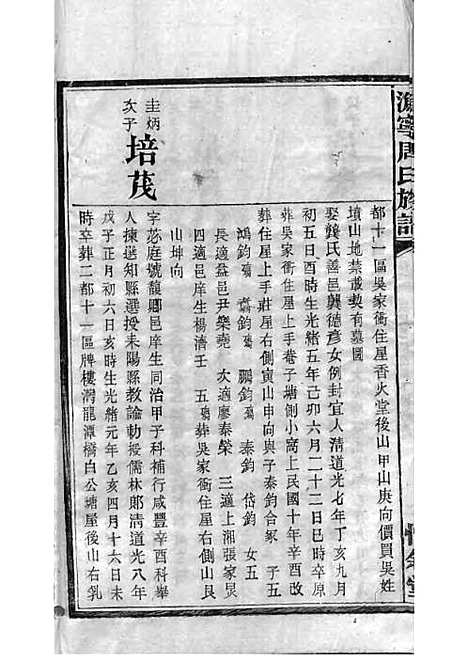 溈寧周氏族譜
都十一區吳家衝住屋香火堂後山甲山庚向價買吳姓
墳山地禁載契有墓圖
娶龔氏善邑龔德彥女例封宜人清道光七年丁亥九月
初五日酉時生光緒五年己卯六月二十二日巳時卒原
葬吳家衝住屋上手巷子塘側小窩上民國十年辛酉改
葬住屋上手莊屋右側寅山申向與子泰鈞合冢 子五
鴻鈞殤 鑫鈞殤 鵬鈞殤 泰鈞 岱鈞 女五
長適益邑尹樂堯 次適廖泰榮 三適上湘張家炅
四適邑庠生楊濟壬 五殤葬吳家衝住屋右側山艮
山坤向
圭炳次子
培茂
字苾庭號馥卿邑庠生同治甲子科補行咸豐辛酉科舉
人揀選知縣選授耒陽縣教諭勅授儒林郎清道光八年
戊子正月初六日亥時生光緒元年乙亥四月十六日未
時卒葬二都十一區牌樓灣龍潭橋白公塘屋後山右乳